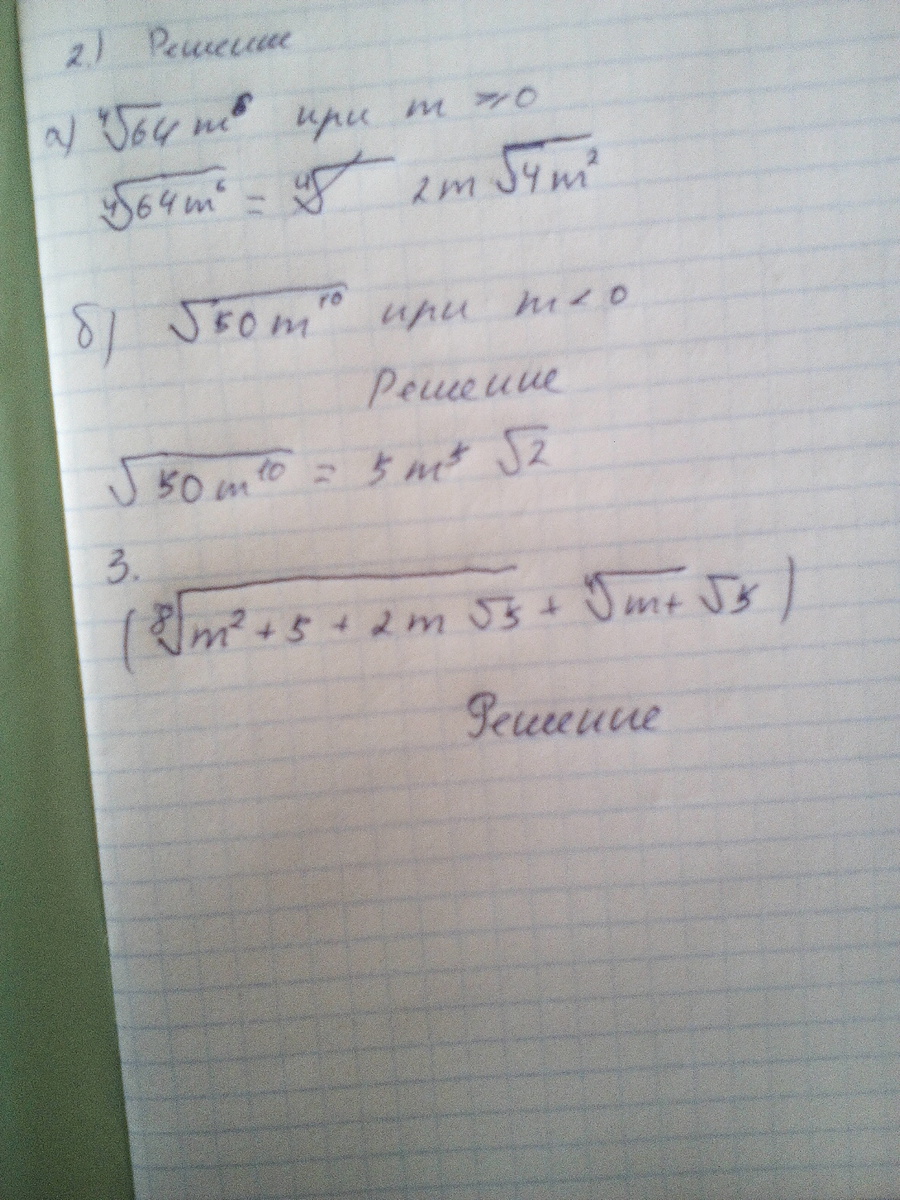 2.) Решение
а) ⁴√64 m⁶ при m ⩾ 0
⁴√64m⁶ = ⁴√ 2m √4m²
б) √50m¹⁰ при m < 0
Решение
√50m¹⁰ = 5m⁵ √2
3.
(⁸√m² + 5 + 2m √5 + ⁴√m + √5 )
Решение